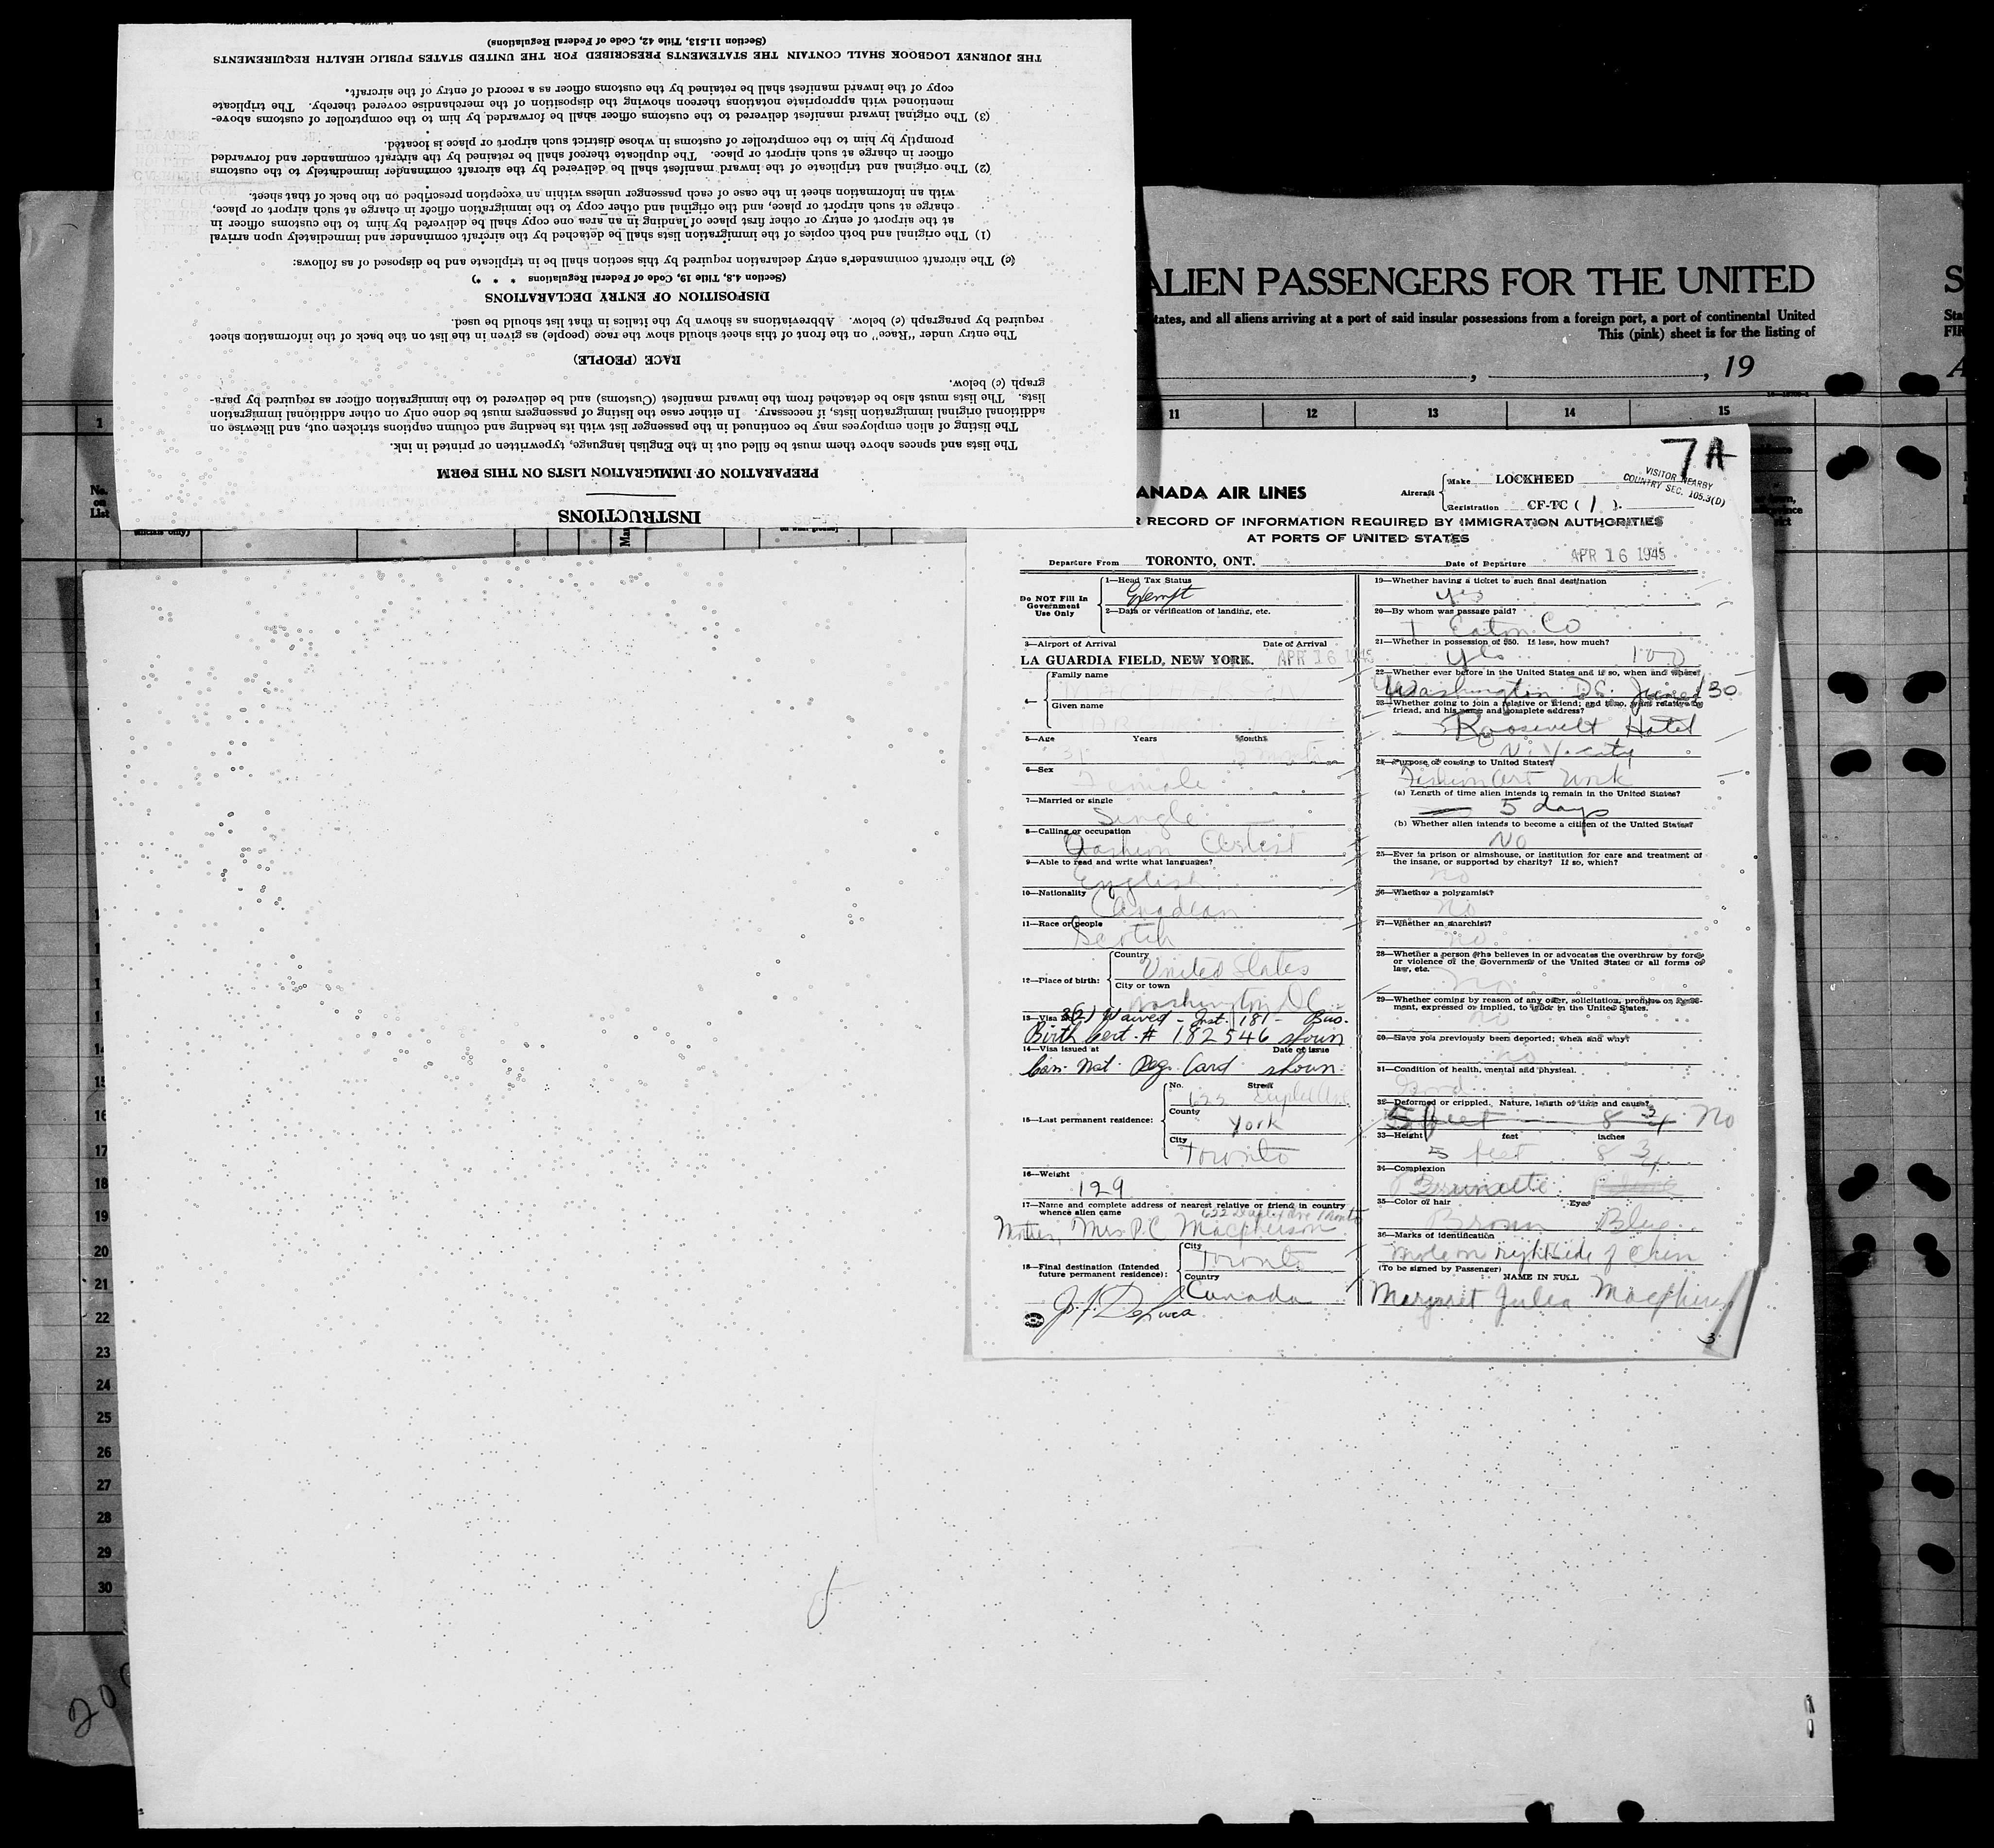 INSTRUCTIONS
PREPARATION OF IMMIGRATION LISTS ON THIS FORM
The lists and spaces above them must be filled out in the English language, typewritten or printed in ink.
The listing of alien employees may be continued in the passenger list with its heading and column captions stricken out, and likewise on
additional original immigration lists, if necessary. In either case the listing of passengers must be done only on other additional immigration
lists. The lists must also be detached from the inward manifest (Customs) and be delivered to the immigration officer as required by para-
graph (c) below.
RACE (PEOPLE)
The entry under "Race" on the front of this sheet should show the race (people) as given in the list on the back of the information sheet
required by paragraph (c) below. Abbreviations as shown by the italics in that list should be used.
DISPOSITION OF ENTRY DECLARATIONS
(Section 4.8, Title 19, Code of Federal Regulations * * *)
(c) The aircraft commander's entry declaration required by this section shall be in triplicate and be disposed of as follows:
(1) The original and both copies of the immigration lists shall be detached by the aircraft commander and immediately upon arrival
at the airport of entry or other first place of landing in an area one copy shall be delivered by him to the customs officer in
charge at such airport or place, and the original and other copy to the immigration officer in charge at such airport or place,
with an information sheet in the case of each passenger unless within an exception prescribed on the back of that sheet.
(2) The original and triplicate of the inward manifest shall be delivered by the aircraft commander immediately to the customs
officer in charge at such airport or place. The duplicate thereof shall be retained by the aircraft commander and forwarded
promptly by him to the comptroller of customs in whose district such airport or place is located.
(3) The original inward manifest delivered to the customs officer shall be forwarded by him to the comptroller of customs above-
mentioned with appropriate notations thereon showing the disposition of the merchandise covered thereby. The triplicate
copy of the inward manifest shall be retained by the customs officer as a record of entry of the aircraft.
THE JOURNEY LOGBOOK SHALL CONTAIN THE STATEMENTS PRESCRIBED FOR THE UNITED STATES PUBLIC HEALTH REQUIREMENTS
(Section 11.513, Title 42, Code of Federal Regulations)
ALIEN PASSENGERS FOR THE UNITED
tates, and all aliens arriving at a port of said insular possessions from a foreign port, a port of continental United
This (pink) sheet is for the listing of
, , 19
11 12 13 14 15
1
No. on List
7A
VISITOR NEARBY
COUNTRY SEC. 105.3(D)
ANADA AIR LINES
Aircraft Make LOCKHEED
Registration CF-TC ( 1 ).
R RECORD OF INFORMATION REQUIRED BY IMMIGRATION AUTHORITIES
AT PORTS OF UNITED STATES
Departure From TORONTO, ONT. Date of Departure APR 16 1945
Do NOT Fill In Government Use Only
1—Head Tax Status
Exempt
2—Data or verification of landing, etc.
3—Airport of Arrival Date of Arrival
LA GUARDIA FIELD, NEW YORK. APR 16 1945
4— Family name
Given name
5—Age Years Months
6—Sex
Female
7—Married or single
Single
8—Calling or occupation
Fashion Artist
9—Able to read and write what languages?
English
10—Nationality
Canadian
11—Race or people
Scotch
12—Place of birth: Country
United States
City or town
Washington DC
13—Visa Waived - Inst. 181 - Bus.
Birth cert. # 182546 shown
14—Visa issued at Date of issue
Can. Nat. Reg. Card shown.
15—Last permanent residence: No. Street
County
York
City
Toronto
16—Weight
129
17—Name and complete address of nearest relative or friend in country
whence alien came
Mother, Mrs P.C Macpherson
18—Final destination (Intended
future permanent residence): City
Toronto
Country
Canada
19—Whether having a ticket to such final destination
yes
20—By whom was passage paid?
T Eaton Co
21—Whether in possession of $50. If less, how much?
yes 100
22—Whether ever before in the United States and if so, when and where?
Washington DC. June /30
23—Whether going to join a relative or friend; and if so, what relative or
friend, and his name and complete address?
Roosevelt Hotel
N.Y. city
24—Purpose of coming to United States?
Fashion Art Work
(a) Length of time alien intends to remain in the United States?
5 days
(b) Whether alien intends to become a citizen of the United States?
No
25—Ever in prison or almshouse, or institution for care and treatment of
the insane, or supported by charity? If so, which?
no
26—Whether a polygamist?
no
27—Whether an anarchist?
no
28—Whether a person who believes in or advocates the overthrow by force
or violence of the Government of the United States or all forms of
law, etc.
no
29—Whether coming by reason of any offer, solicitation, promise or agree-
ment, expressed or implied, to labor in the United States.
no
30—Have you previously been deported; when and why?
no
31—Condition of health, mental and physical.
Good
32—Deformed or crippled. Nature, length of time and cause?
5 feet 8 3/4 No
33—Height feet inches
5 feet 8 3/4
34—Complexion
Brunette
35—Color of hair Eyes
Brown Blue
36—Marks of identification
mole on right side of chin
(To be signed by Passenger)
NAME IN FULL
Margaret Julia Macpherson
3
14
15
16
17
18
19
20
21
22
23
24
25
26
27
28
29
30